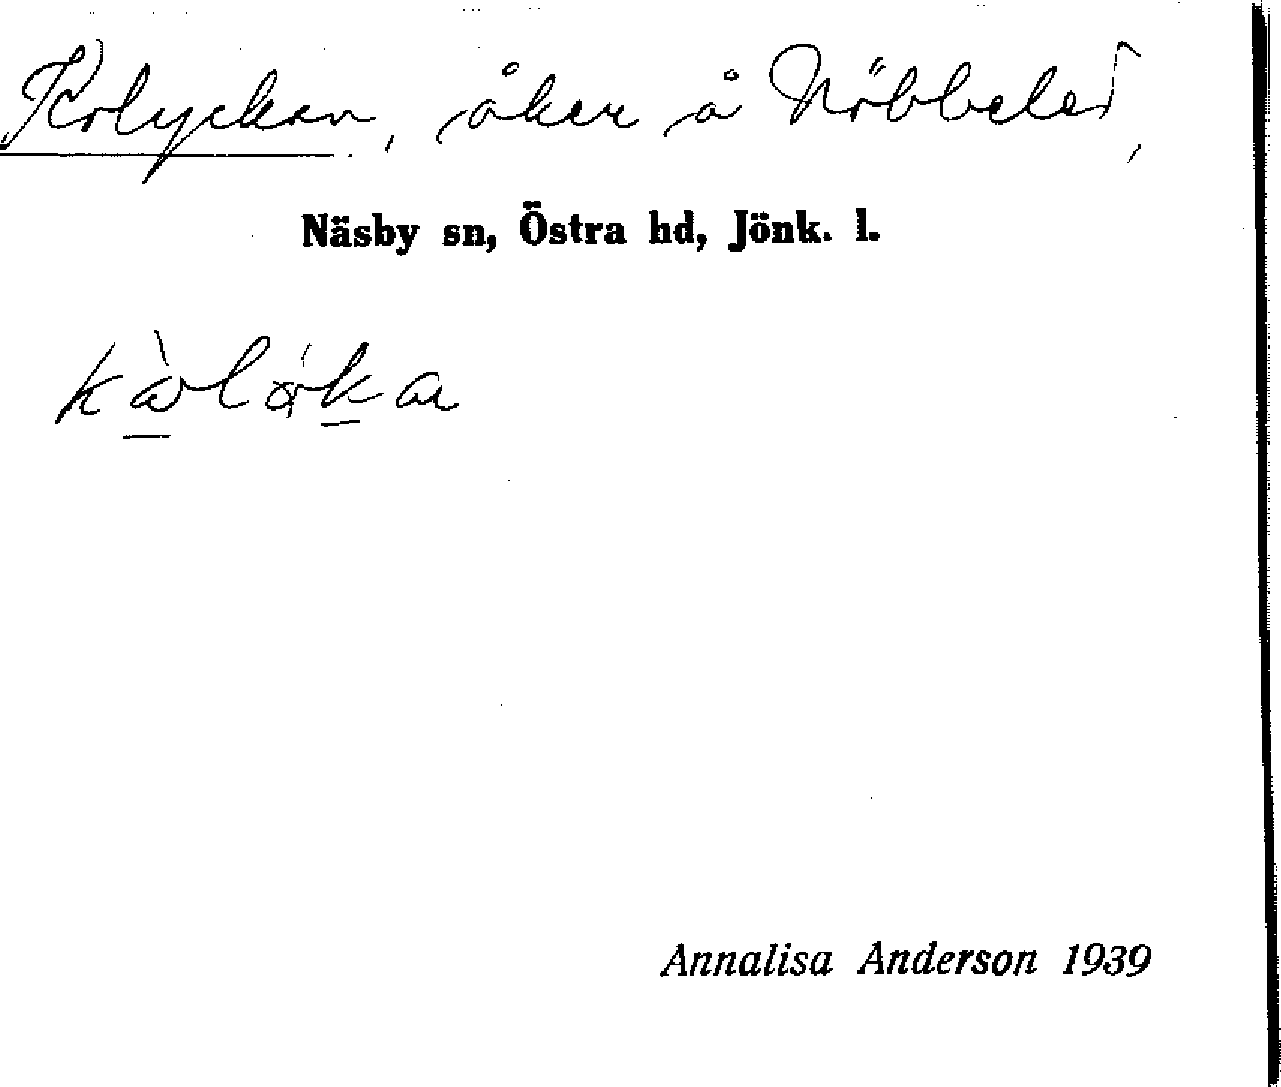 Kolyckan, åker å Nöbbeled,
Näsby sn, Östra hd, Jönk. l.
Annalisa Anderson 1939